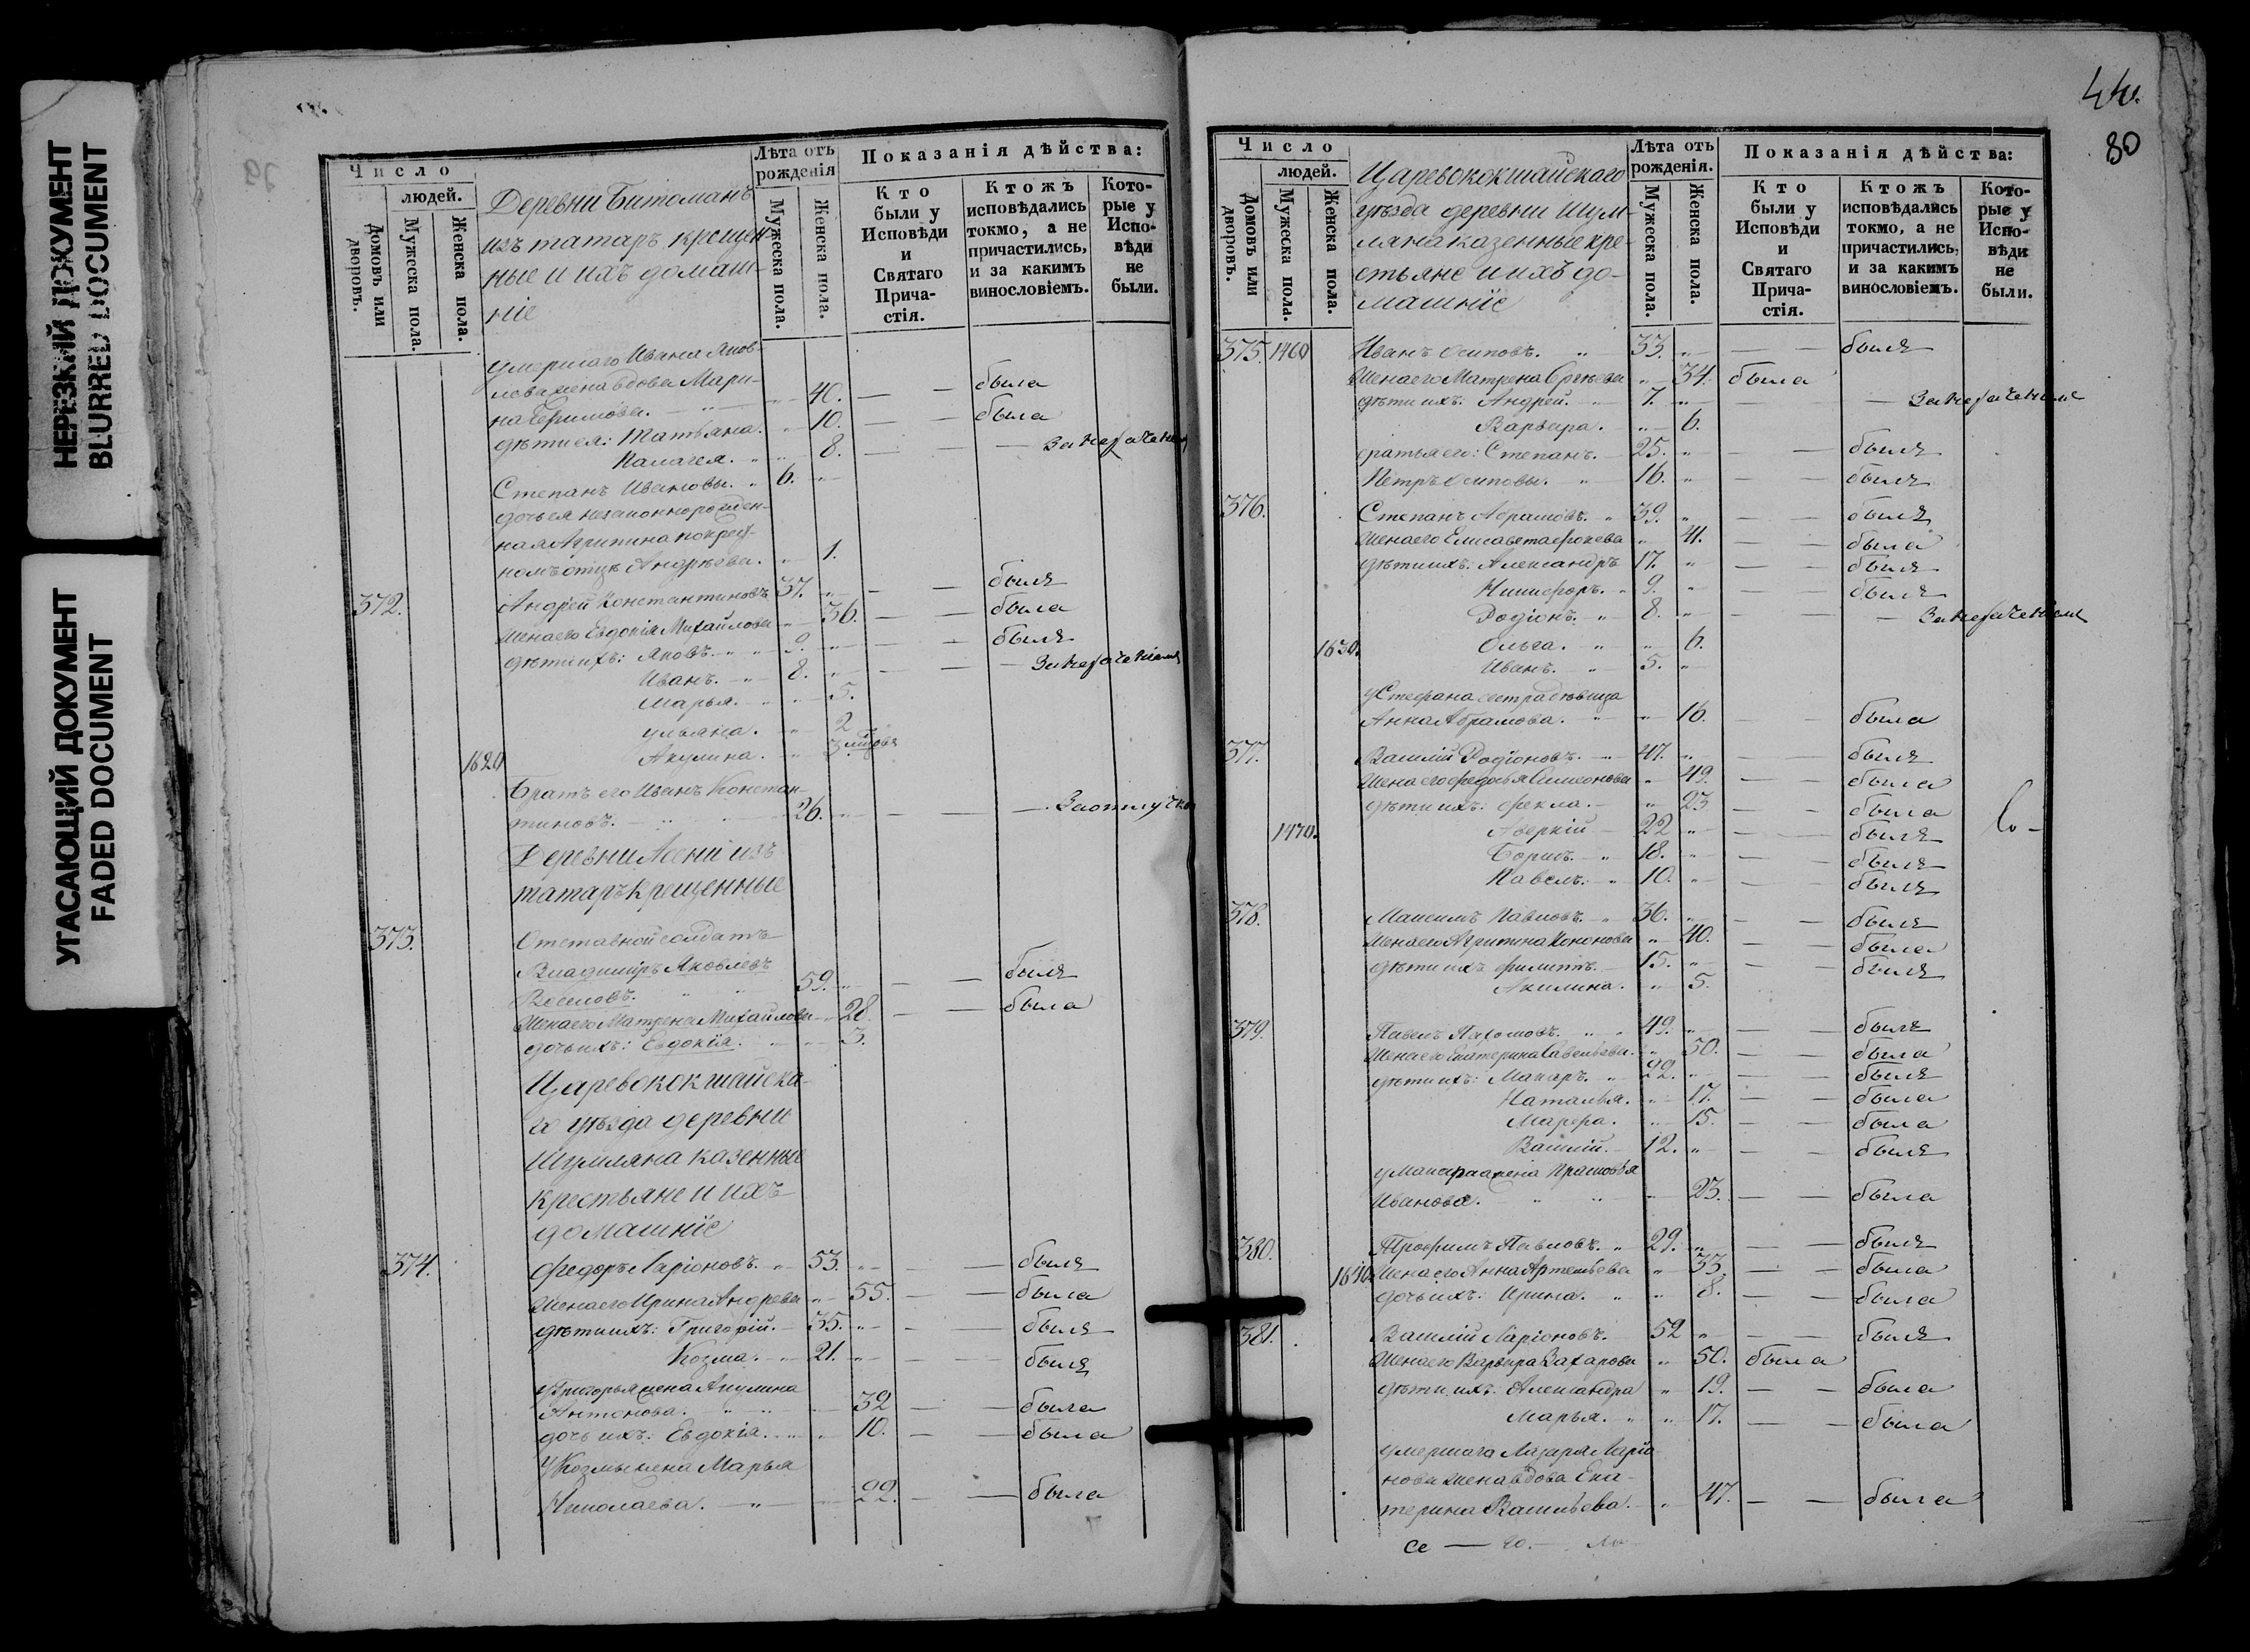 НЕРЕЗКИЙ ДОКУМЕНТ
BLURRED DOCUMENT
УГАСАЮЩИЙ ДОКУМЕНТ
FADED DOCUMENT
Число
людей.
Домовъ или дворовъ.
Мужеска пола.
Женска пола.
Деревни Битоманъ
изъ татаръ крещен-
ные и ихъ домаш-
ніе
Лѣта отъ рожденія
Мужеска пола.
Женска пола.
Показанія дѣйства:
Кто были у Исповѣди и Святаго Прича-стія.
Ктожъ исповѣдались токмо, а не причастились, и за какимъ винословіемъ.
Кото-рые у Испо-вѣди не были.
умершаго Ивана Яков-
лева жена вдова Мари-
на Ефимова. 40. была
дѣти ея: Татьяна. 10. была
Палагея. 8.
Степанъ Ивановы. 6.
дочь ея незаконнорожден-
ная Агрипина по крес-
номъ отцѣ Андрѣева. 1.
372. Андрей Константиновъ 37. былъ
Жена его Евдокія Михайлова 36. была
дѣти ихъ: Яковъ. 9. былъ
Иванъ. 8.
Марья. 5.
Ульяна. 2
1620 Акулина. 3
Братъ его Иванъ Констан-
тиновъ. 26. За отлучкою
Деревни Асени изъ
татаръ крещенные
373. Отставной солдатъ
Владиміръ Яковлевъ
59. былъ
Жена его Матрена Михайлова 28. была
дочь ихъ: Евдокія. 3.
Царевококшайска-
го уѣзда деревни
Шумляна казенные
крестьяне и ихъ
домашніе
374. Федоръ Ларіоновъ. 53. былъ
Жена его Ирина Андреева 55. была
дѣти ихъ: Григорій. 35. былъ
Козма. 21. былъ
у Григорья жена Акулина
Антонова. 32 была
дочь ихъ: Евдокія. 10. была
У Козмы жена Марья
Николаева. 22. была
44.
80
Число
людей.
Домовъ или дворовъ.
Мужеска пола.
Женска пола.
Царевококшайскаго
уѣзда деревни Шум-
ляна казенные кре-
стьяне и ихъ до-
машніе
Лѣта отъ рожденія.
Мужеска пола.
Женска пола.
Показанія дѣйства:
Кто были у Исповѣди и Святаго Прича-стія.
Ктожъ исповѣдались токмо, а не причастились, и за какимъ винословіемъ.
Кото-рые у Испо-вѣди не были.
375. 1460 Иванъ Осиповъ. 33. былъ
Жена его Матрена Сргѣева 34. была
дѣти ихъ: Андрей. 7.
Варвара. 6.
братья его: Степанъ. 25. былъ
Петръ Осиповы. 16. былъ
376. Степанъ Абрамовъ. 39. былъ
Жена его Елисавета Фокева 41. была
дѣти ихъ: Александръ 17. былъ
Никифоръ. 9. былъ
Родіонъ. 8.
1630. Ольга. 6.
Иванъ. 5.
у Стефана сестра дѣвица
Анна Абрамова. 16. была
377. Василій Родіоновъ. 47. былъ
Жена его Федосья Симеонова 49. была
дѣти ихъ: Фекла. 23 была
1470. Аверкій 22 былъ
Борисъ. 18. былъ
Павелъ. 10. былъ
378. Максимъ Павловъ. 36. былъ
Жена его Агрипина Кононова 40. была
дѣти ихъ Филиппъ. 15. былъ
Акилина. 5.
379. Павелъ Пахомовъ. 49. былъ
Жена его Екатерина Савельева. 50. была
дѣти ихъ: Макаръ. 22. былъ
Наталья. 17. была
Марфа. 15. была
Василій. 12. былъ
у Макара жена Прасковья
Иванова. 23. была
380. Трофимъ Павловъ. 29. былъ
1640 Жена его Анна Артемьева 33. была
дочь ихъ: Ирина. 8. была
381. Василій Ларіоновъ. 52 былъ
Жена его Варвара Захарова 50. была
дѣти ихъ: Александра 19. была
Марья. 17. была
умершаго Лазаря Ларіо
нова жена вдова Ека-
терина Васильева. 47. была